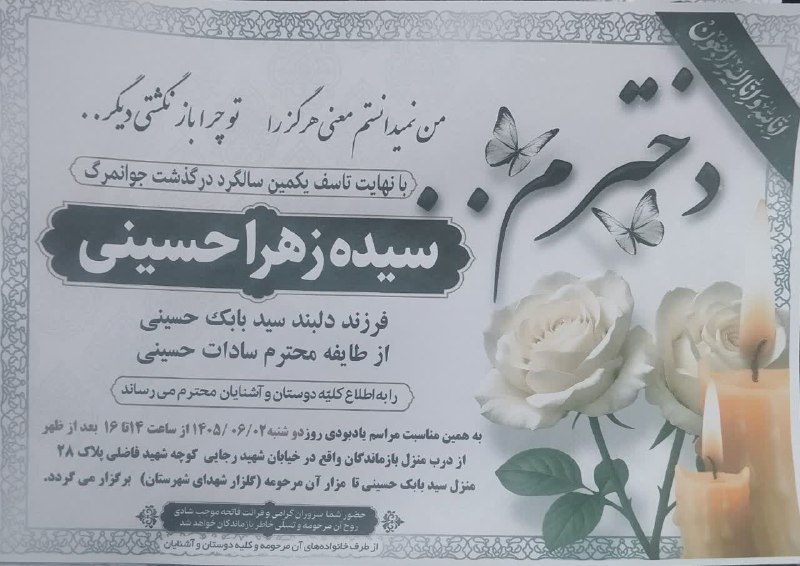 انا لله و انا الیه راجعون
دخترم..
من نمیدانستم معنی هرگز را تو چرا باز نگشتی دیگر..
با نهایت تاسف یکمین سالگرد درگذشت جوانمرگ
سیده زهرا حسینی
فرزند دلبند سید بابک حسینی
از طایفه محترم سادات حسینی
را به اطلاع کلیّه دوستان و آشنایان محترم می رساند
به همین مناسبت مراسم یادبودی روز دو شنبه ۱۴۰۵/۰۶/۰۲ از ساعت ۱۴ تا ۱۶ بعد از ظهر
از درب منزل بازماندگان واقع در خیابان شهید رجایی کوچه شهید فاضلی پلاک ۲۸
منزل سید بابک حسینی تا مزار آن مرحومه (گلزار شهدای شهرستان) برگزار می گردد.
حضور شما سروران گرامی و قرائت فاتحه موجب شادی
روح آن مرحومه و تسلی خاطر بازماندگان خواهد شد
از طرف خانواده‌های آن مرحومه و کلیه دوستان و آشنایان